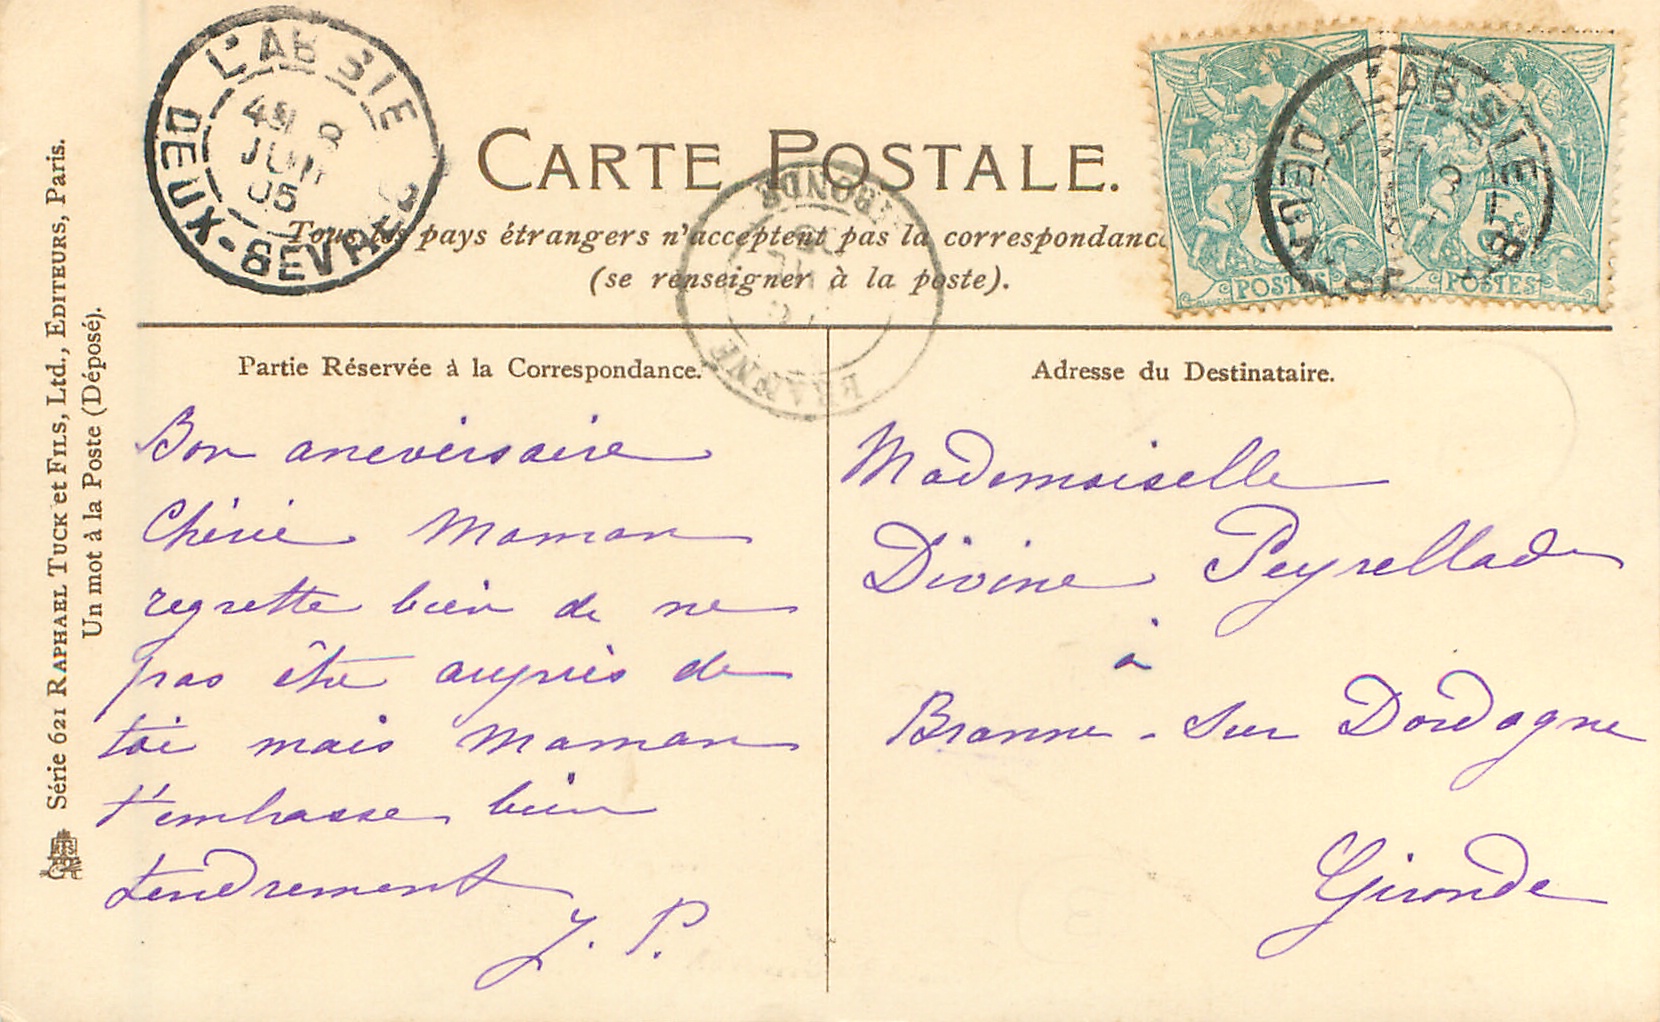 CARTE POSTALE.
Tous les pays étrangers n'acceptent pas la correspondance
(se renseigner à la poste).
L'ABSIE
DEUX-SEVRES
4E 8
JUIN
05
GIRONDE
BRANNE
L'ABSIE
DEUX-SEVRES
5c
POSTES
POSTES
Série 621 RAPHAEL TUCK et FILS, Ltd., EDITEURS, Paris.
Un mot à la Poste (Déposé).
Partie Réservée à la Correspondance.
Bon aneversaire
Chérie Maman
regrette bien de ne
pas être auprès de
toi mais Maman
t'embrasse bien
tendrement
J. P.
Adresse du Destinataire.
Mademoiselle
Divine Peyrellade
à
Branne - sur Dordogne
Gironde